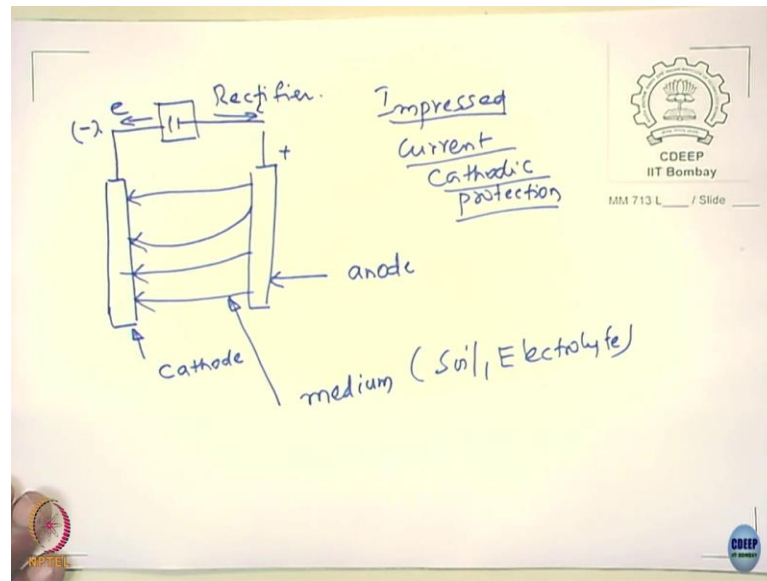 Rectifier.
e
(-)
+
Impressed
Current
Cathodic
protection
anode
Cathode
medium (Soil, Electrolyte)
CDEEP
IIT Bombay
MM 713 L____ / Slide ____
NPTEL
CDEEP
IIT BOMBAY